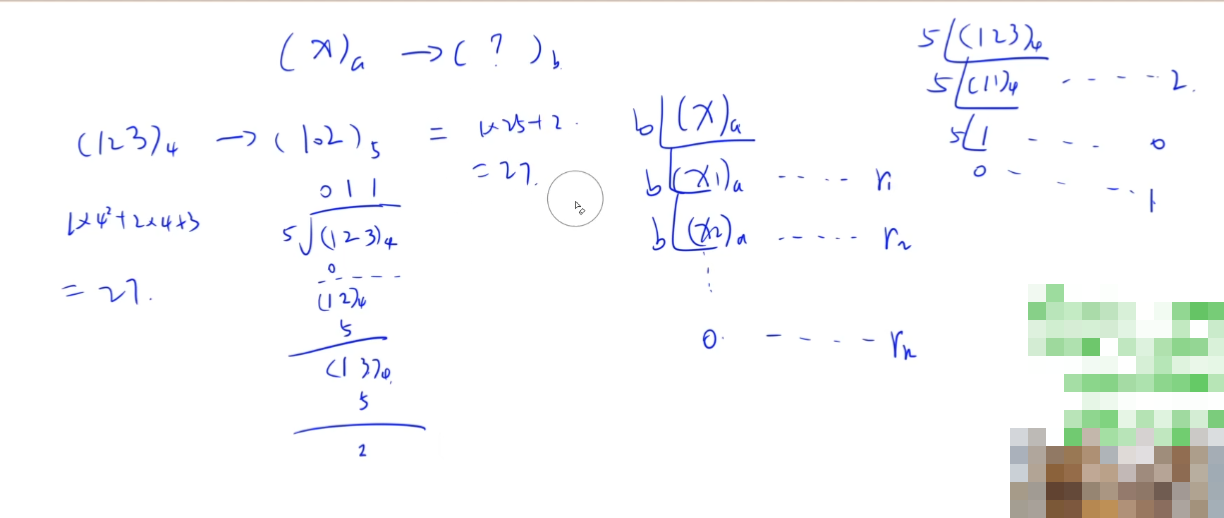 (x)ₐ → ( ? )_b
(123)₄ → (102)₅ = 1×25+2
= 27.
1×4²+2×4+3
= 27.
011
5√(123)₄
0
(12)₄
5
(13)₄
5
2
b (x)ₐ
b (x₁)ₐ ----- r₁
b (x₂)ₐ ------ r₂
⋮
0 ----- rₙ
5 (123)₄
5 (11)₄ ----- 2.
5 1 ---- 0
0 ----- 1